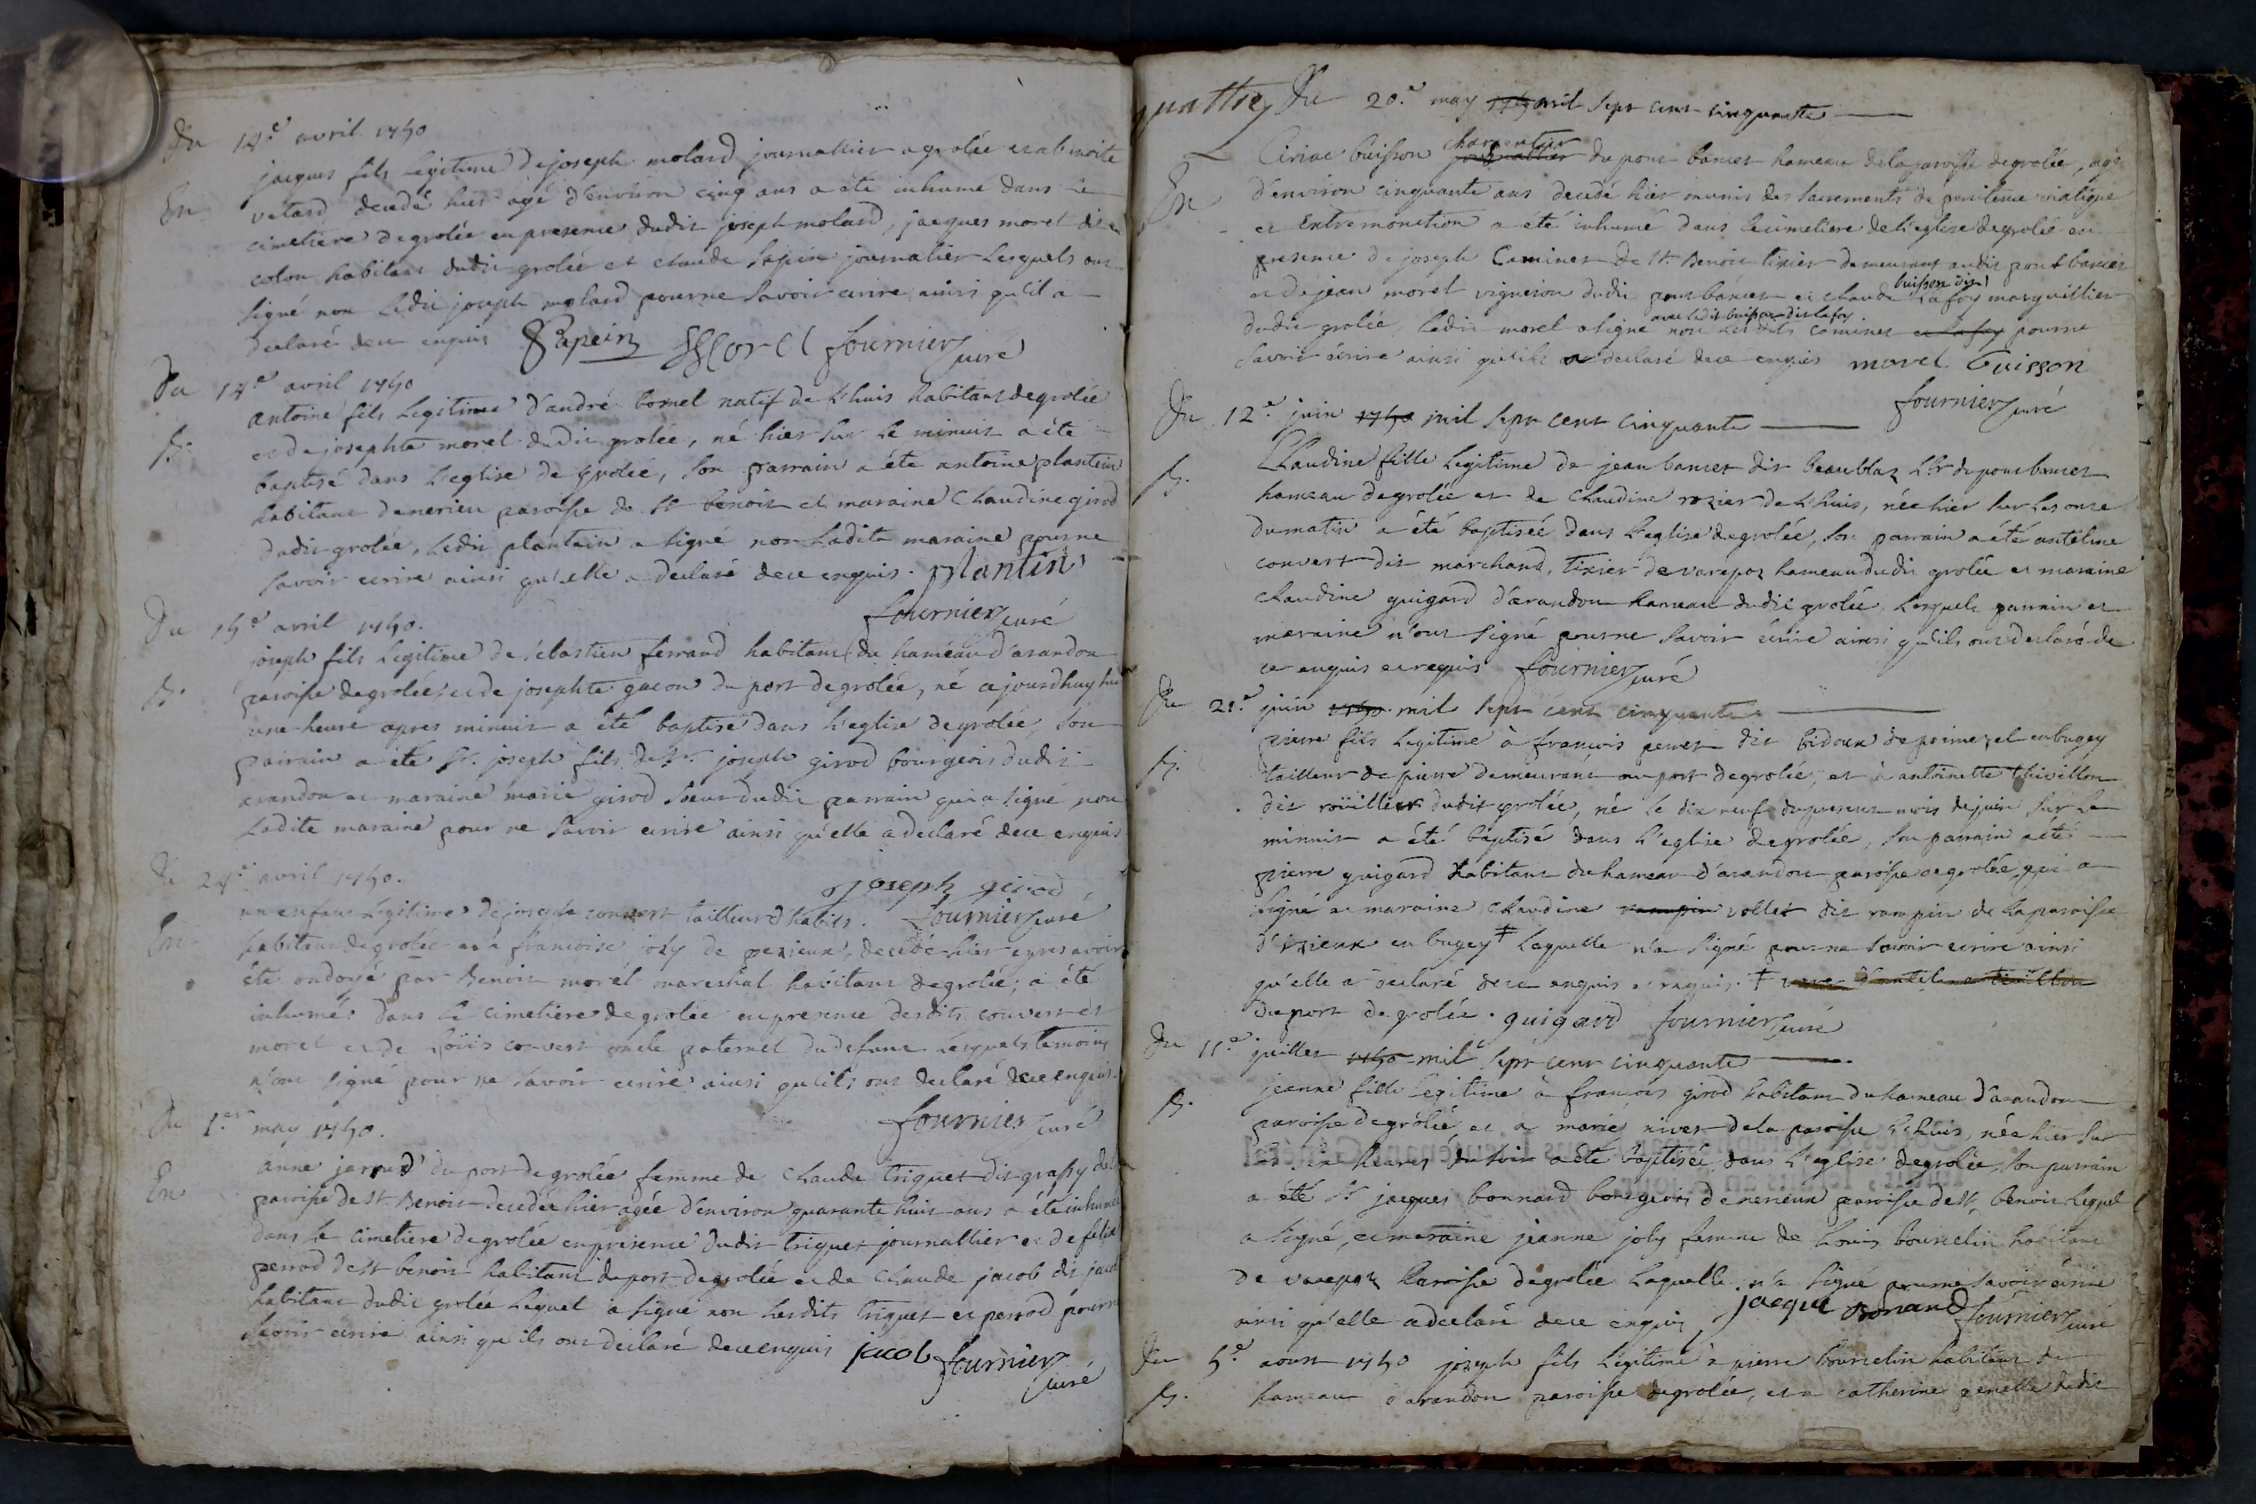 Du 12.e avril 1750
jacques fils legitime de joseph molard journallier a grolée et a benoite
En
vetard decedé hier agé d'environ cinq ans a été inhumé dans le
cimetiere de grolée en presence dudit joseph molard, jacques morel dit
colon habitans dudit grolée et claude papin journalier lesquels ont
signé non ledit joseph molard pour ne savoir ecrire ainsi qu'il a
declaré de ce enquis Papein Morel fournier curé
Du 14.e avril 1750
antoine fils legitime d'andré bornel natif de Lhuis habitant de grolée
B.
et de josephte morel dudit grolée, né hier sur le minuit a été
baptisé dans l'eglise de grolée, son parrain a été antoine plantin
habitant de nerieu paroisse de St benoit et maraine Claudine girod
dudit grolée, ledit plantin a signé non ladite maraine pour ne
savoir ecrire ainsi qu'elle a declaré de ce enquis. plantin
fournier curé
Du 15.e avril 1750.
joseph fils legitime de sébastien ferrand habitant du hameau d'arandon
B.
paroisse de grolée et de josephte gacon du port de grolée, né ce jourd'huy
une heure apres minuit a été baptisé dans l'eglise de grolée, son
parrain a été Sr. joseph fils de Sr. joseph girod bourgeois dudit
arandon et maraine marie girod soeur dudit parrain qui a signé non
ladite maraine pour ne savoir ecrire ainsi qu'elle a declaré de ce enquis
joseph girod
Du 24.e avril 1750.
un enfant legitime de joseph convert tailleur d'habits. fournier curé
En
habitant de grolée et à francoise joly de pezieux, decedé hier apres avoir
été ondoyé par Benoit morel mareschal habitant de grolée; a été
inhumé dans le cimetiere de grolée en presence desdits convert et
morel et de Loüis convert oncle paternel du defunt lesquels temoins
n'ont signé pour ne savoir ecrire ainsi qu'ils ont declaré de ce enquis.
fournier curé
Du 1.er may 1750.
anne jarrud du port de grolée femme de Claude triquet dit grassy de la
En
paroisse de St. Benoit decedée hier agée d'environ quarante huit ans a été inhumée
dans le cimetiere de grolée en presence dudit triquet journallier et de felix
perrod de St benoit habitant du port de grolée et de Claude jacob dit jacob
habitant dudit grolée lequel a signé non lesdits triquet et perrod pour ne
savoir ecrire ainsi qu'ils ont declaré de ce enquis jacob fournier
curé
quattre Du 20.e may 1750 mil sept cent cinquante
charpentier
Ciriac buisson journallier du pont bancet hameau de la paroisse de grolée, agé
En
d'environ cinquante ans decedé hier munis des sacrements de penitence viatique
et Extremonction a été inhumé dans le cimetiere de l'eglise de grolée en
presence de joseph Caminet de St. Benoit tixier demeurant audit pont bancet
buisson dit
et de jean morel vigneron dudit pont bancet et claude Lafoy marguillier
avec ledit buisson dit lafoy
dudit grolée, ledit morel a signé non lesdits Caminet et lafoy pour ne
savoir écrire ainsi qu'ils a declaré de ce enquis morel buisson
fournier curé
Du 12.e juin 1750 mil sept cent cinquante
Claudine fille legitime de jean bancet dit beaublaz Lbr de pont bancet
B.
hameau de grolée et de Claudine rozier de Lhuis, née hier sur les onze
du matin a été baptisée dans l'eglise de grolée, son parrain a été antelme
convert dit marchand, tixier de varepoz hameau dudit grolée et maraine
claudine guigard d'arandon hameau dudit grolée lesquels parrain et
maraine n'ont signé pour ne savoir écrire ainsi qu'ils ont declaré de
ce enquis et requis fournier curé
Du 21.e juin 1750 mil sept cent cinquante
pierre fils legitime à francois perret dit bidoux de premeyzel en bugey
B.
tailleur de pierre demeurant au port de grolée, et à antoinette thivillon
dit roüillier dudit grolée, né le dix neuf du present mois de juin sur le
minuit a été baptisé dans l'eglise de grolée, son parrain a été
pierre guigard habitant du hameau d'arandon paroisse de grolée qui a
signé et maraine Claudine rampin vollet dit rampin de la paroisse
d'izieux en bugey ‡ laquelle n'a signé pour ne savoir ecrire ainsi
qu'elle a declaré de ce enquis et requis. ‡
du port de grolée. guigard fournier curé
Du 11.e juillet 1750 mil sept cent cinquante
jeanne fille legitime à francois girod habitant du hameau d'arandon
B.
paroisse de grolée et a marie nivet de la paroisse de Lhuis, née hier sur
les dix heures du soir a été baptisée dans l'eglise de grolée, son parrain
a été Sr jacques bonnard bourgeois de nerieux paroisse de St. benoit lequel
a signé, et maraine jeanne joly femme de Louis bourcelin habitant
de varepoz paroisse de grolée laquelle n'a signé pour ne savoir écrire
ainsi qu'elle a declaré de ce enquis jacque Bonard fournier curé
Du 5.e aoust 1750 joseph fils legitime à pierre bourcelin habitant du
B.
hameau d'arandon paroisse de grolée, et a catherine genette dudit